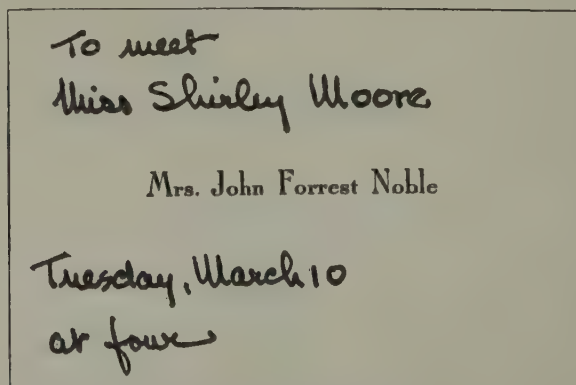 To meet
Miss Shirley Moore
Mrs. John Forrest Noble
Tuesday, March 10
at four